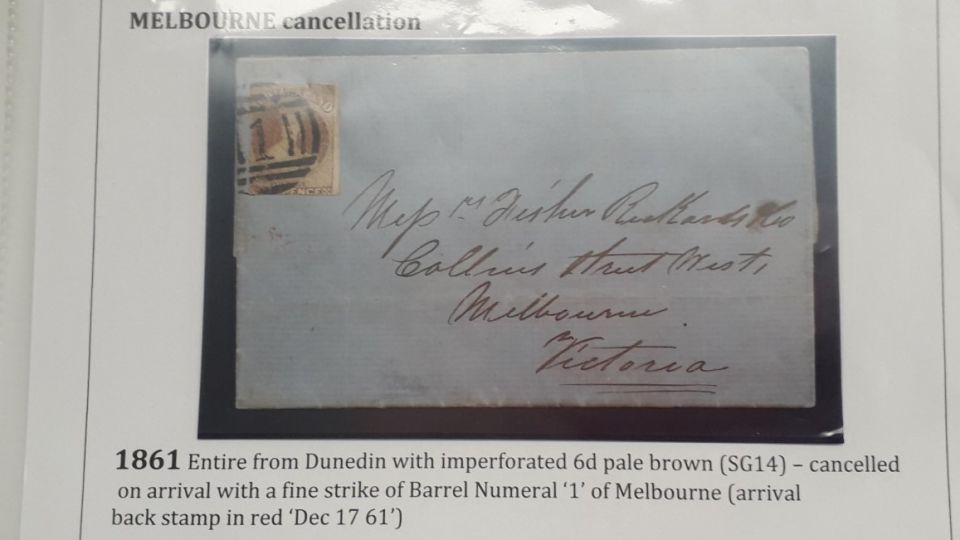 MELBOURNE cancellation
1
PENCE
Mess rs Fisher Rickards & Co
Collins Street West,
Melbourne
Victoria
1861 Entire from Dunedin with imperforated 6d pale brown (SG14) – cancelled
on arrival with a fine strike of Barrel Numeral ‘1’ of Melbourne (arrival
back stamp in red ‘Dec 17 61’)